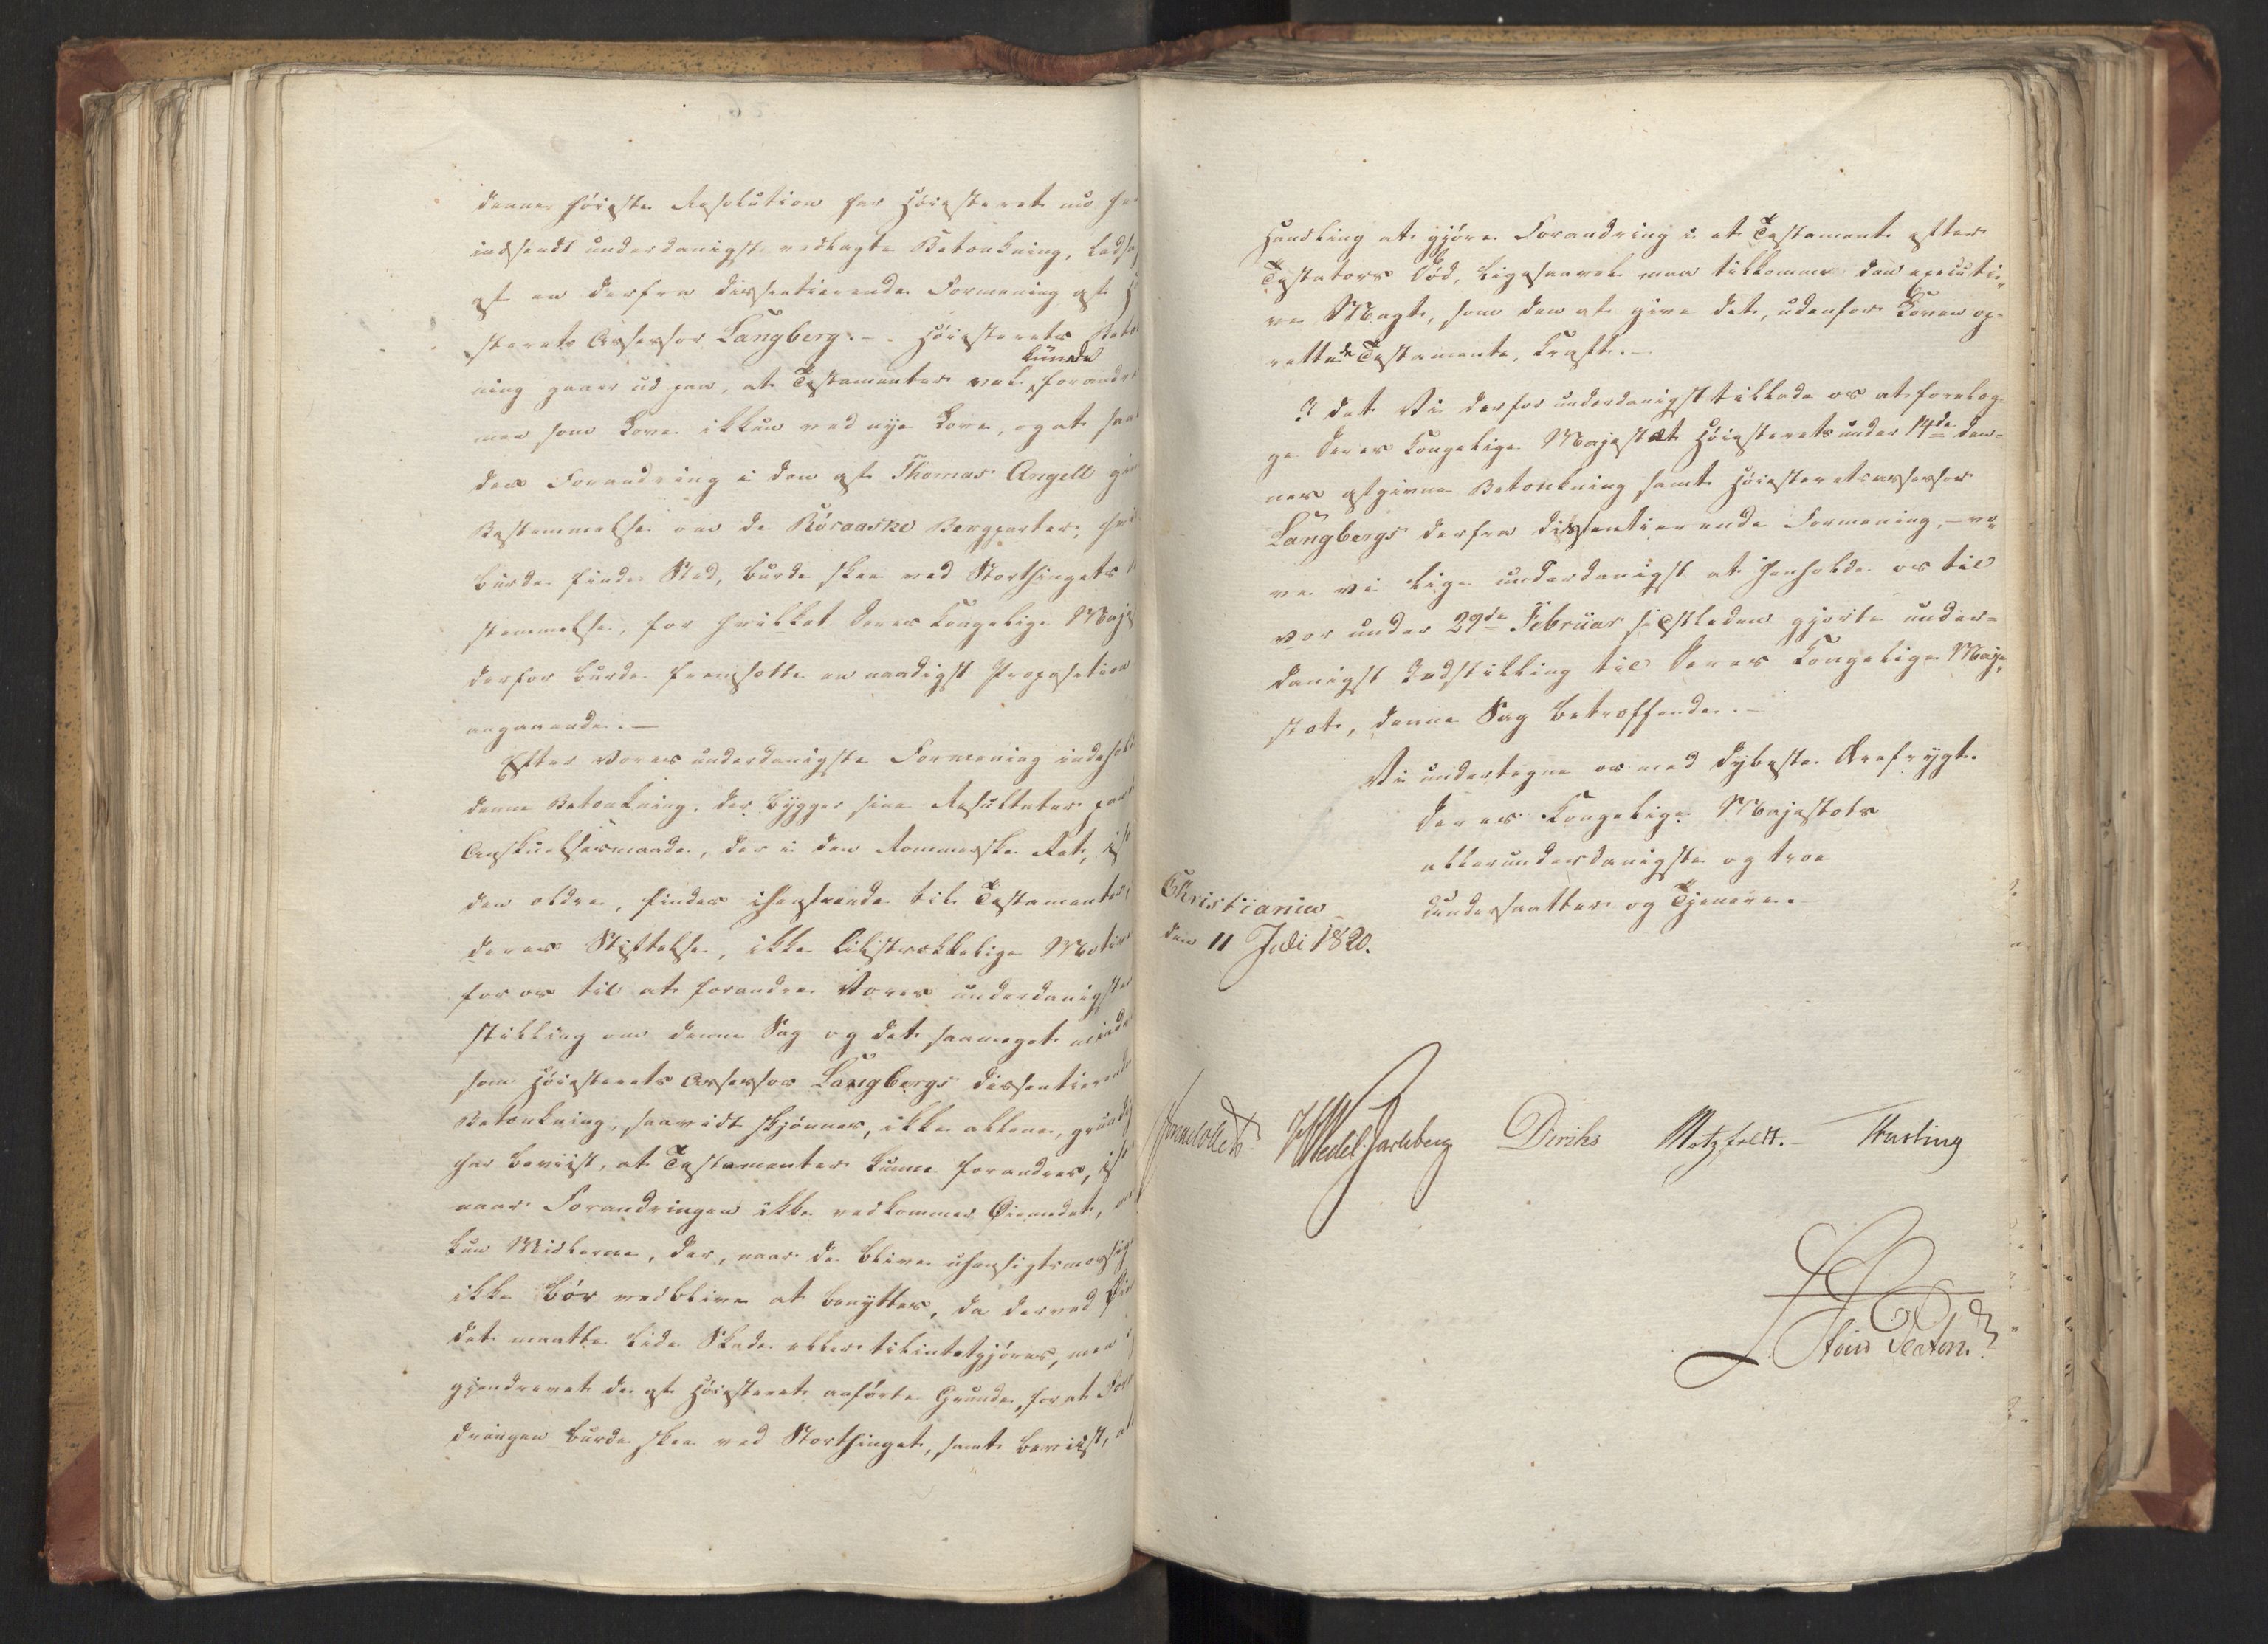 denne høieste Resolution har Høiesteret nu
indsendt underdanigst vedlagte Betænkning,
af en derfra dissentierende Formening af
sterets Assessor Langberg. – Høiesterets
ning gaaer ud paa, at Testamenter vel kunde
men som Love ikkun ved nye Love, og at
den Forandring i den af Thomas Angell
Bestemmelse om de Röraaske Bergparter,
burde finde Sted, burde skee ved Storthingets
stemmelse, for hvilket Deres Kongelige
derfor burde fremsætte en naadigst Proposition
angaaende. –
Efter Vores underdanigste Formening
denne Betænkning, der bygger sine Resultater paa
Anskuelsesmaade, der i den Rommerske Ret,
den ældre, findes ihenseende til Testamenter,
deres Stiftelse, ikke tilstrækkelige Motiver
for os til at forandre Vores underdanigste
stilling om denne Sag og det saameget mindre
som Høiesterets Assessor Langbergs dissentierende
Betænkning, saavidt skjønnes, ikke allene, grundig
har beviist, at Testamenter kunne forandres,
naar Forandringen ikke vedkommer Øiemedet,
kun Midlerne, der, naar de blive uhensigtsmæssige
ikke bør vedblive at benyttes, da derved
det maatte lide Skade eller tilintetgjøres, men
gjendrevet de af Høiesteret anførte Grunde, for at
dringen burde skee ved Storthinget, samt beviist, at
Handling at gjøre Forandring i et Testament efter
Testators Død, ligesaavel maa tilkomme den executi-
ve Magt, som den at give det, udenfor Loven op-
rettede Testamente, Kraft. –
I det Vi derfor underdanigst tillade os at forelæg-
ge Deres Kongelige Majestæt Høiesterets under 14de den-
nes afgivne Betænkning samt Høiesteretsassessor
Langbergs derfra dissentierende Formening, – vo-
ve vi lige underdanigst at henholde os til
vor under 29de Februar sidstleden gjorte under-
danigst Indstilling til Deres Kongelige Maje-
stæt, denne Sag betræffende. –
Vi undertegne os med dybeste Ærefrygt.
Deres Kongelige Majestæts
allerunderdanigste og troe
Undersaatter og Tjenere.
Christiania
den 11 Juli 1820.
HWedel Jarlsberg Diriks Motzfeldt. – Fasting